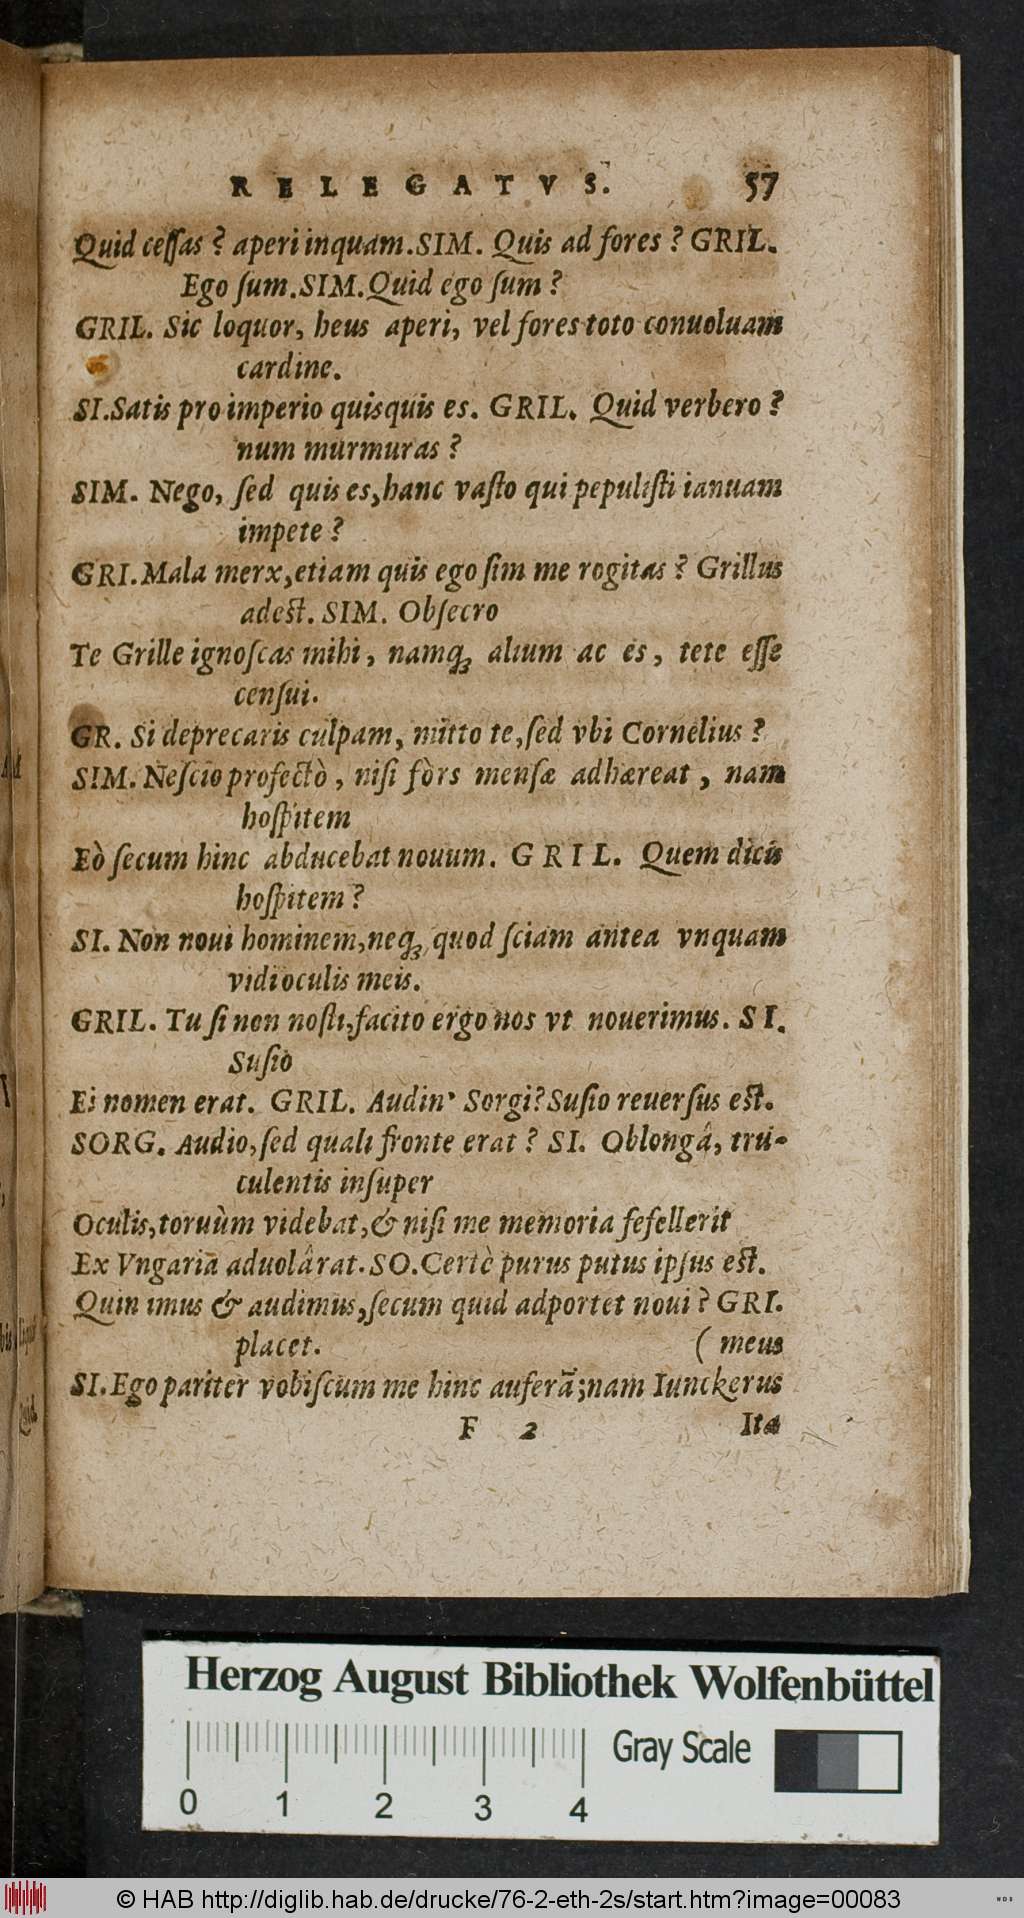 RELEGATVS. 57
Quid ceſſas? aperi inquam. SIM. Quis ad fores? GRIL.
Ego ſum. SIM. Quid ego ſum?
GRIL. Sic loquor, heus aperi, vel fores toto conuoluam
cardine.
SI. Satis pro imperio quisquis es. GRIL. Quid verbero?
num murmuras?
SIM. Nego, ſed quis es, hanc vaſto qui pepuliſti ianuam
impete?
GRI. Mala merx, etiam quis ego ſim me rogitas? Grillus
adeſt. SIM. Obſecro
Te Grille ignoſcas mihi, namq́; alium ac es, tete eſſe
cenſui.
GR. Si deprecaris culpam, mitto te, ſed vbi Cornelius?
SIM. Neſcio profectò, niſi fòrs menſæ adhæreat, nam
hoſpitem
Eò ſecum hinc abducebat nouum. GRIL. Quem dicis
hoſpitem?
SI. Non noui hominem, neq; quod ſciam antea vnquam
vidi oculis meis.
GRIL. Tu ſi non noſti, facito ergo nos vt nouerimus. SI.
Suſio
Ei nomen erat. GRIL. Audin' Sorgi? Suſio reuerſus eſt.
SORG. Audio, ſed quali fronte erat? SI. Oblongâ, tru-
culentis inſuper
Oculis, toruùm videbat, & niſi me memoria fefellerit
Ex Vngaria aduolârat. SO. Certè purus putus ipſus eſt.
Quin imus & audimus, ſecum quid adportet noui? GRI.
placet. (meus
SI. Ego pariter vobiſcum me hinc auferã; nam Iunckerus
F 2 Ita
Herzog August Bibliothek Wolfenbüttel
Gray Scale
0 1 2 3 4
© HAB http://diglib.hab.de/drucke/76-2-eth-2s/start.htm?image=00083